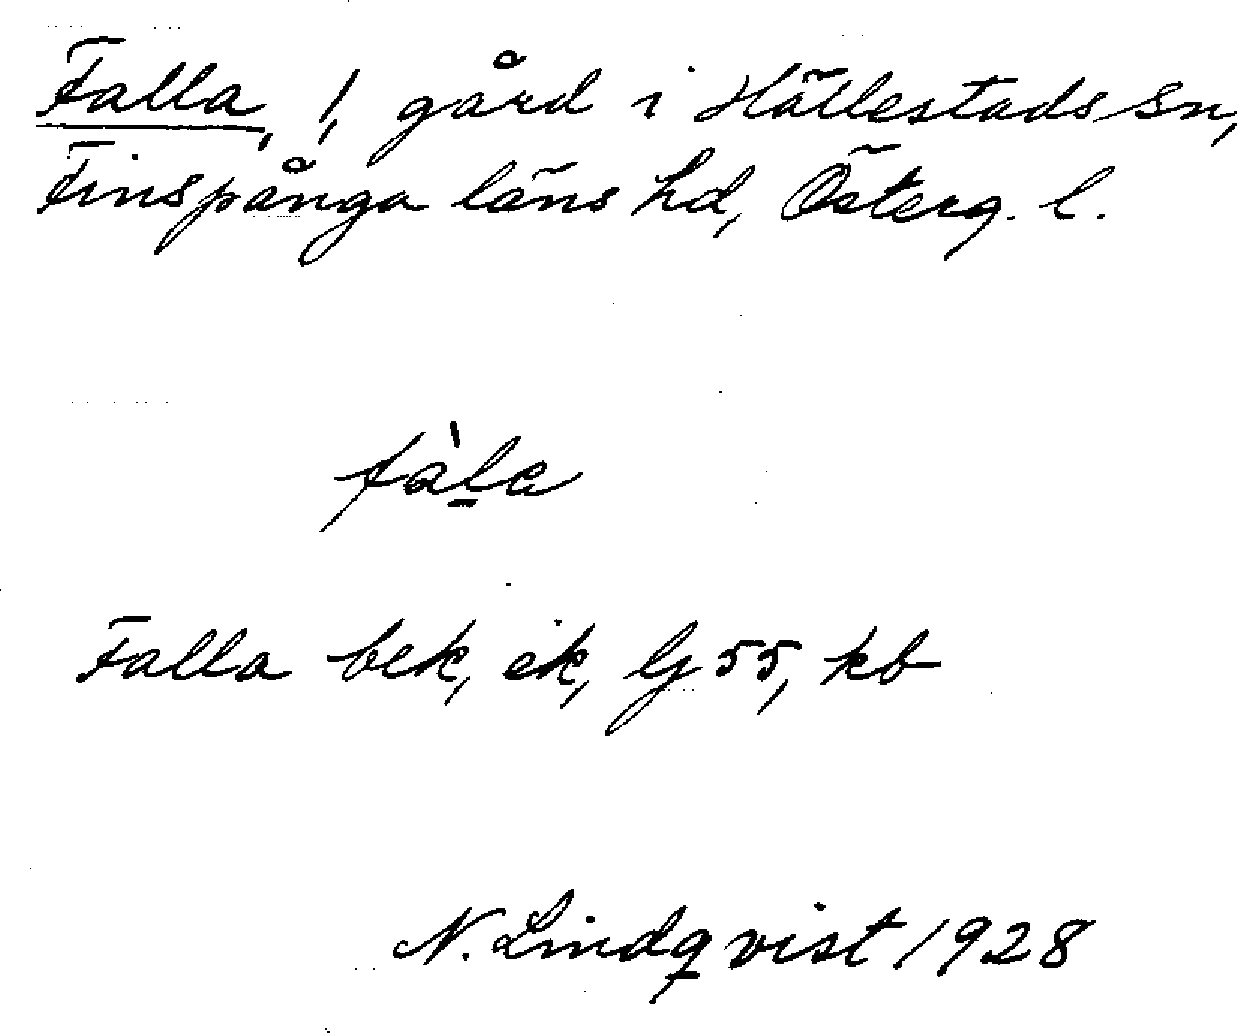 Falla, 1, gård i Hällestads sn,
Finspånga läns hd, Österg. l.
fàl̲a
Falla bek, ek, Gj 55, kb
N. Lindqvist 1928